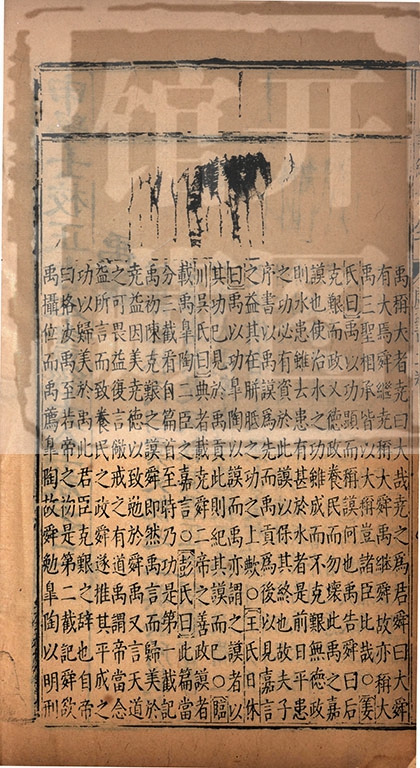 禹稱大者堯曰大哉堯之爲君舜曰大
有大焉爲舜繼堯以大稱禹繼舜故亦稱大
禹三聖相承皆以大稱豈諸臣比哉○姜
氏曰禹以功顯而稱謨何也禹告舜曰后
克艱而政又德政養民而勿壞此禹之嘉
謨也使治水之功雖成而不克艱無德政
則水患雖去有甚於水者是前日患
之功必有資於此謨以保其終也故夫子
序書以謨爲先而貢爲後以見嘉言
之益其在胼胝之功之上歟○王氏日休
曰禹以功皋陶以謨而禹亦謂之謨者以
其功已見於禹貢此則紀其謨也○臨
川吳氏曰典者載堯舜二帝之善政謨者
載禹皋陶二臣之嘉言○彭氏曰此篇當
分三截看自篇首至時乃功是第一截記
禹初陳克艱之謨舜即然禹言而歸美於
堯益因益美堯德以勉舜禹又言天道
之可畏益復言儆戒之道禹謂帝當念
益所言而致養民之政舜遂推其平成之
功以歸美於禹此君臣克艱之辭也自帝
曰格汝禹至若帝之初是第二截記舜欲
禹攝位而禹薦皋陶故舜勉皋陶以明刑